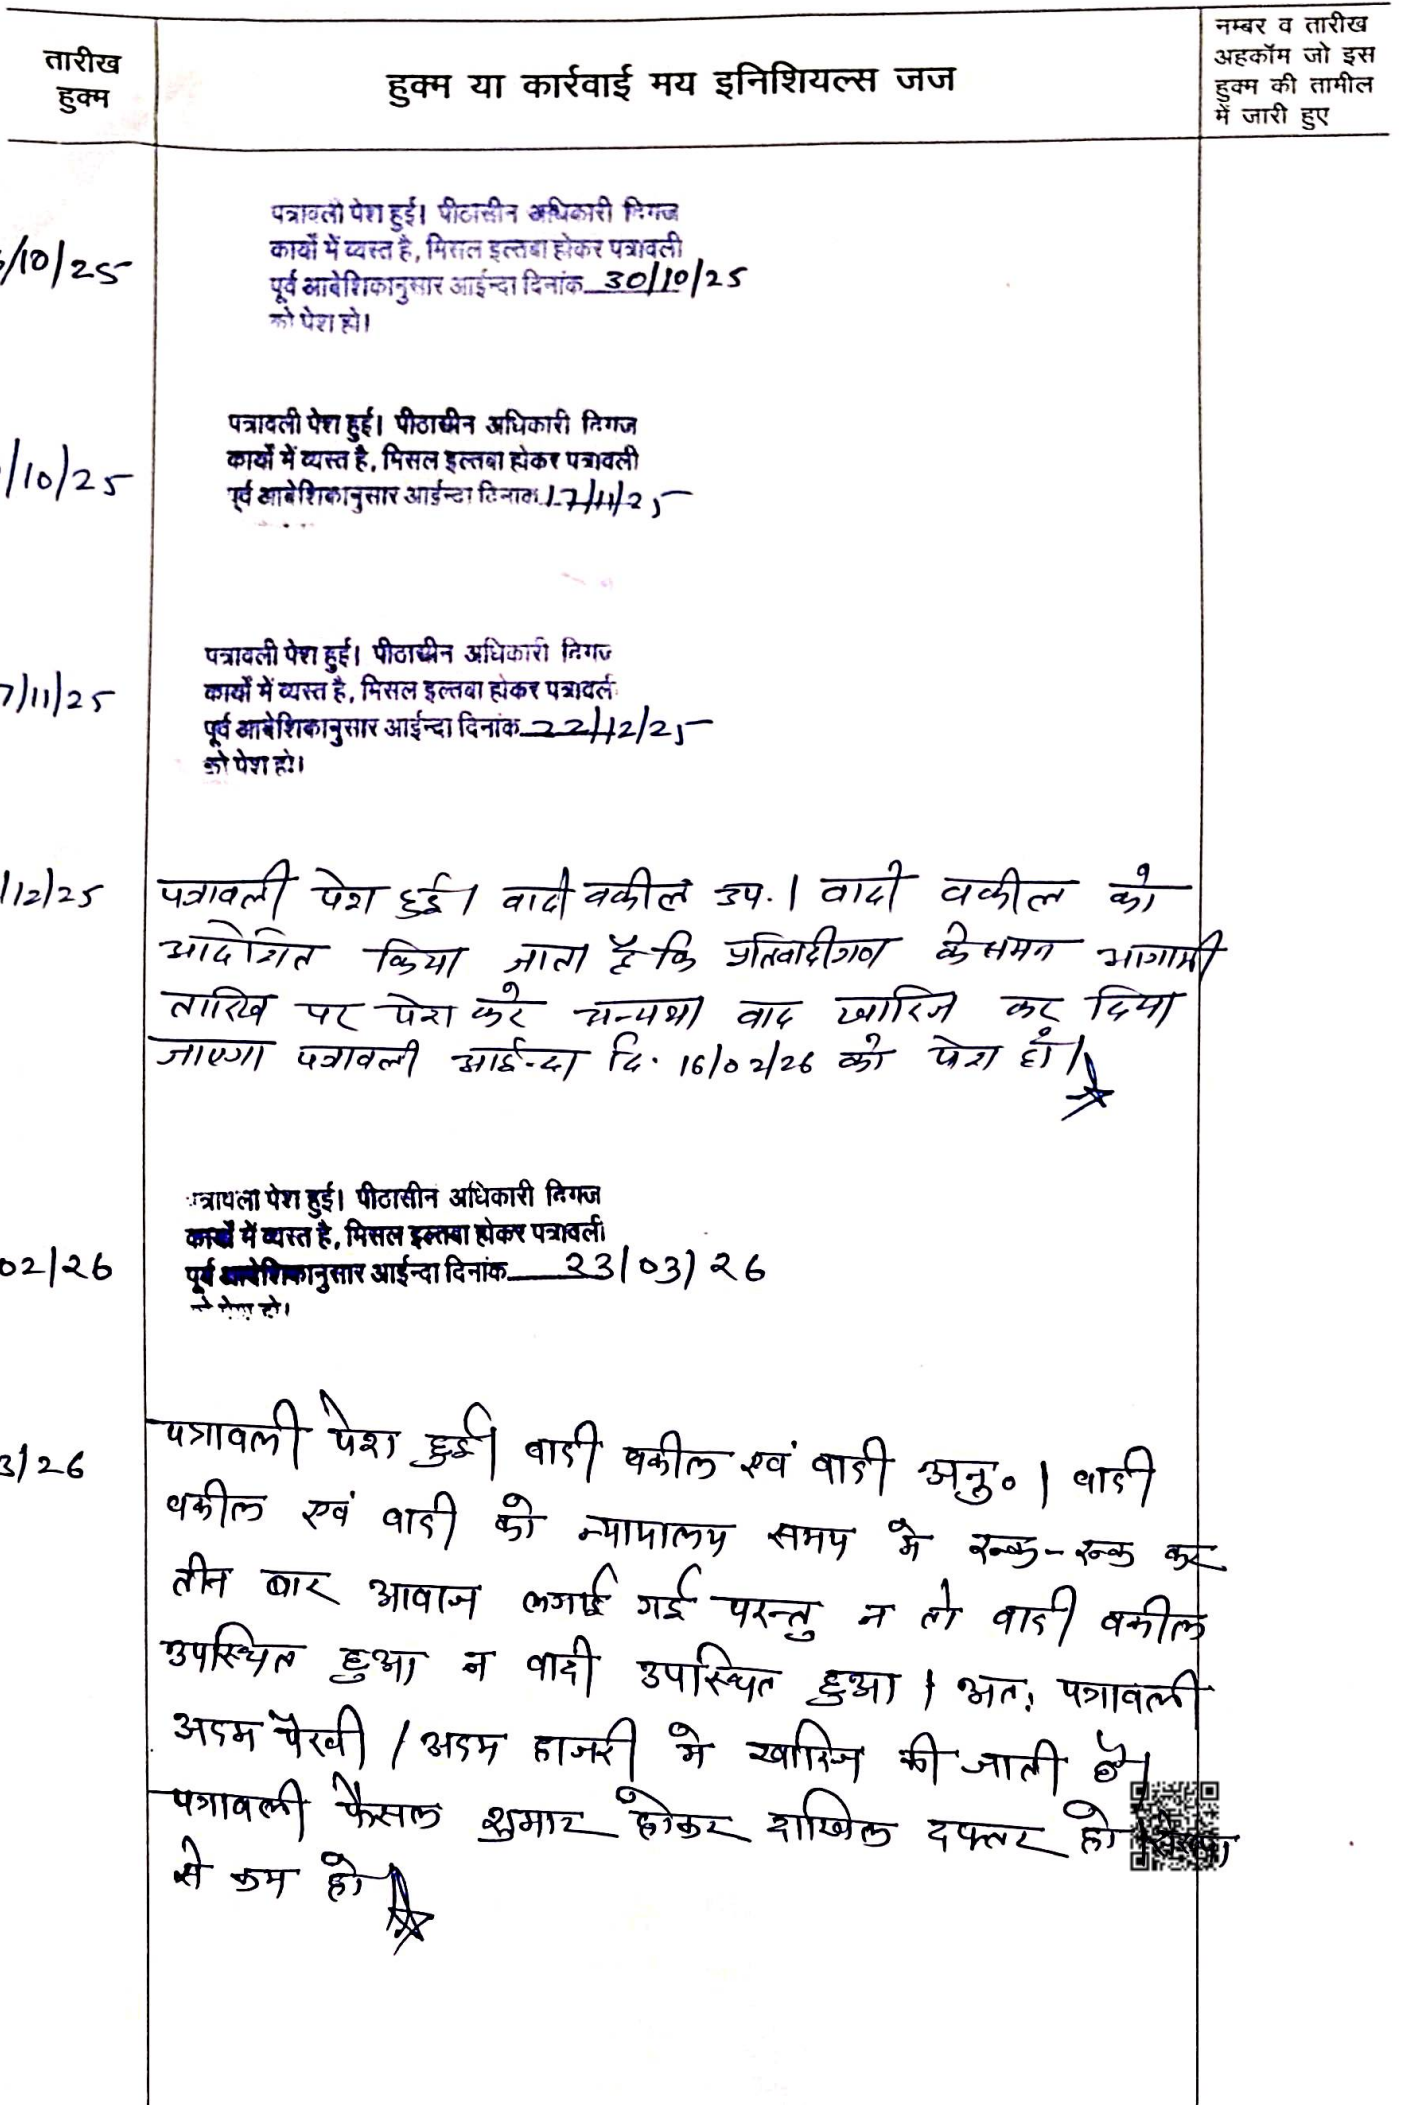 तारीख
हुक्म
हुक्म या कार्रवाई मय इनिशियल्स जज
नम्बर व तारीख
अहकॉम जो इस
हुक्म की तामील
में जारी हुए
पत्रावली पेश हुई। पीठासीन अधिकारी निगज
कार्यो में व्यस्त है, मिसल इल्तबा होकर पत्रावली
/10/25
पूर्व आदेशिकानुसार आईन्दा दिनांक 30/10/25
को पेश हो।
पत्रावली पेश हुई। पीठासीन अधिकारी निगज
कार्यो में व्यस्त है, मिसल इल्तबा होकर पत्रावली
/10/25
पूर्व आदेशिकानुसार आईन्दा दिनांक 17/11/25
पत्रावली पेश हुई। पीठासीन अधिकारी निगज
7/11/25
कार्यो में व्यस्त है, मिसल इल्तबा होकर पत्रावली
पूर्व आदेशिकानुसार आईन्दा दिनांक 22/12/25
को पेश हो।
/12/25
पत्रावली पेश हुई। वादी वकील उप.। वादी वकील को
आदेशित किया जाता है कि प्रतिवादीगण के समन आगामी
तारिख पर पेश करे अन्यथा वाद खारिज कर दिया
जाएगा पत्रावली आईन्दा दि. 16/02/26 को पेश हो।
पत्रावली पेश हुई। पीठासीन अधिकारी निगज
कार्यो में व्यस्त है, मिसल इल्तबा होकर पत्रावली
02/26
पूर्व आदेशिकानुसार आईन्दा दिनांक 23/03/26
को पेश हो।
3/26
पत्रावली पेश हुई। वादी वकील एवं वादी अनु०। वादी
वकील एवं वादी को न्यायालय समय मे रूक-रूक कर
तीन बार आवाज लगाई गई परन्तु न तो वादी वकील
उपस्थित हुआ न वादी उपस्थित हुआ। अतः पत्रावली
अदम पैरवी / अदम हाजरी मे खारिज की जाती है।
पत्रावली फैसल शुमार होकर दाखिल दफ्तर हो
से कम हो।